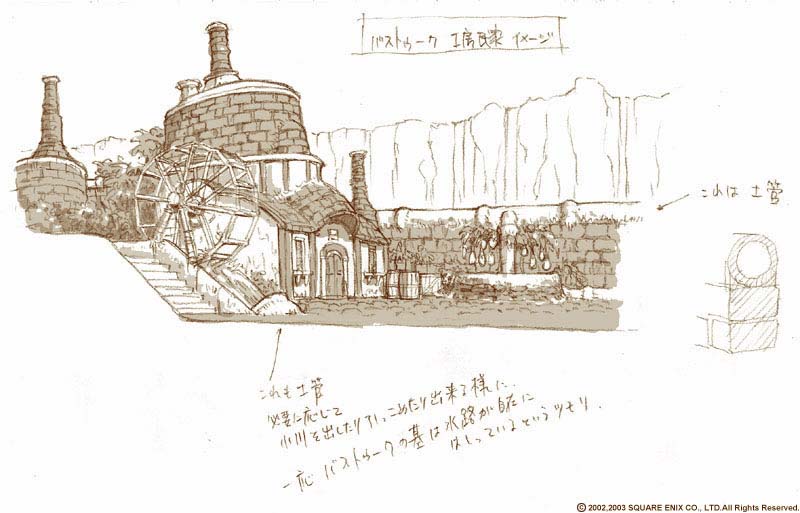 バストゥーク 工房民家 イメージ
これは 土管
これも土管
必要に応じて
小川を出したりひっこめたり出来る様に.
一応 バストゥークの基は水路が自在に
はしっているというツモリ.
© 2002,2003 SQUARE ENIX CO., LTD.All Rights Reserved.